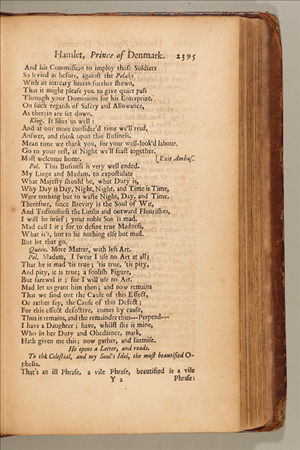 Hamlet, Prince of Denmark. 2395
And his Commission to imploy those Soldiers
So levied as before, against the Polak:
With an intreaty herein further shewn,
That it might please you to give quiet pass
Through your Dominions for his Enterprize,
On such regards of Safety and Allowance,
As therein are set down.
King. It likes us well:
And at our more consider'd time we'll read,
Answer, and think upon this Business.
Mean time we thank you, for your well-look'd labour.
Go to your rest, at Night we'll feast together.
Most welcome home. [Exit Ambas.
Pol. This Business is very well ended.
My Liege and Madam, to expostulate
What Majesty should be, what Duty is,
Why Day is Day, Night, Night, and Time is Time,
Were nothing but to waste Night, Day, and Time.
Therefore, since Brevity is the Soul of Wit,
And Tediousness the Limbs and outward Flourishes,
I will be brief; your noble Son is mad.
Mad call I it; for to define true Madness,
What is't, but to be nothing else but mad.
But let that go.
Queen. More Matter, with less Art.
Pol. Madam, I swear I use no Art at all;
That he is mad 'tis true; 'tis true, 'tis pity,
And pity, it is true; a foolish Figure,
But farewel it; for I will use no Art.
Mad let us grant him then; and now remains
That we find out the Cause of this Effect,
Or rather say, the Cause of this Defect;
For this effect defective, comes by cause,
Thus it remains, and the remainder thus---Perpend---
I have a Daughter; have, whilst she is mine,
Who in her Duty and Obedience, mark,
Hath given me this; now gather, and surmise.
He opens a Letter, and reads.
To the Celestial, and my Soul's Idol, the most beautified O-
phelia.
That's an ill Phrase, a vile Phrase, beautified is a vile
Y 2 Phrase: